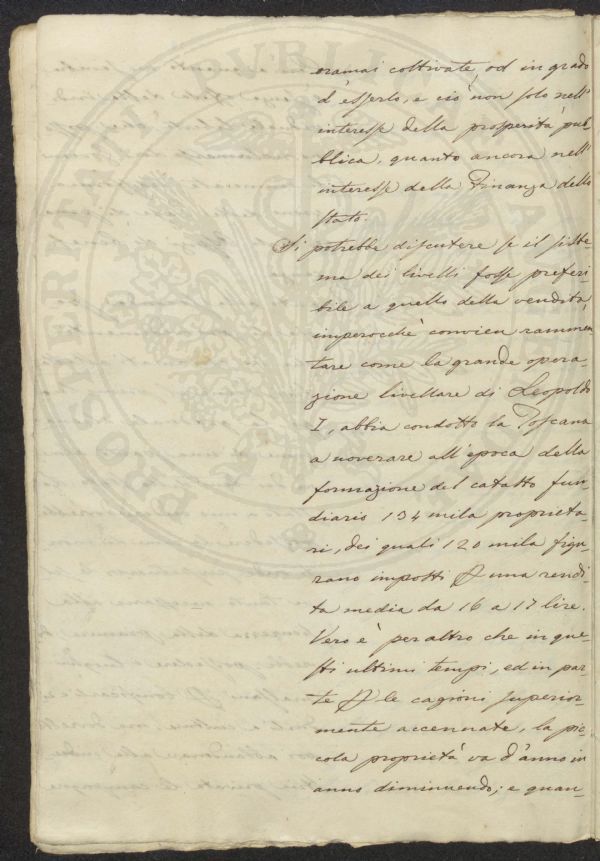 oramai coltivate, od in grado
d'esserlo, e ciò non solo nell'
interesse della prosperità pub-
blica, quanto ancora nell'
interesse della Finanza dello
stato.
Si potrebbe discutere se il siste-
ma dei livelli fosse preferi-
bile a quello della vendita,
imperocchè convien rammen-
tare come la grande opera-
zione livellare di Leopoldo
I, abbia condotto la Toscana
a noverare all'epoca della
formazione del catasto fun-
diario 134 mila proprieta-
ri, dei quali 120 mila figu-
rano imposti una rendi-
ta media da 16 a 17 lire.
Vero è per altro che in que-
sti ultimi tempi, ed in par-
te le cagioni superior-
mente accennate, la pic-
cola proprietà va d'anno in
anno diminuendo; e quan-